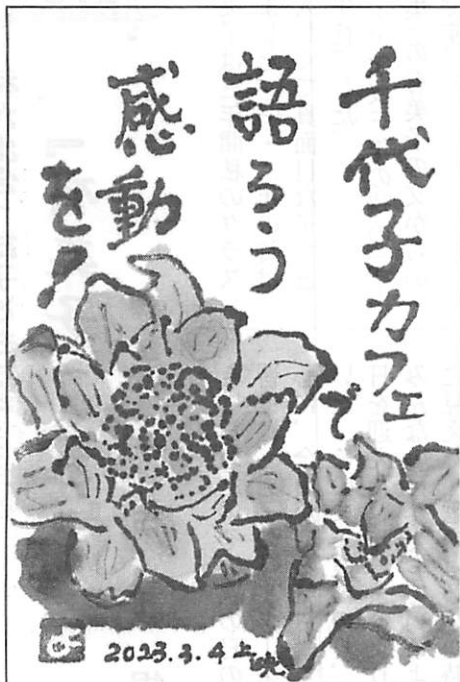 千代子カフェで
語ろう
感動
を！
2023.3.4